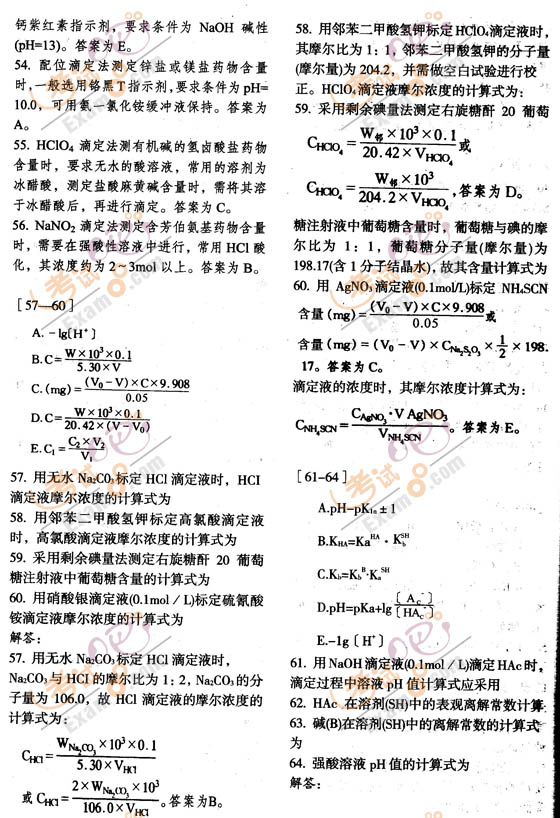 钙紫红素指示剂，要求条件为 NaOH 碱性
(pH=13)。答案为 E。
54. 配位滴定法测定锌盐或镁盐药物含量
时，一般选用铬黑 T 指示剂，要求条件为 pH=
10.0，可用氨一氯化铵缓冲液保持。答案为
A。
55. HClO₄ 滴定法测有机碱的氢卤酸盐药物
含量时，要求无水的酸溶液，常用的溶剂为
冰醋酸，测定盐酸麻黄碱含量时，需将其溶
于冰醋酸后，再进行滴定。答案为 C。
56. NaNO₂ 滴定法测定含芳伯氨基药物含量
时，需要在强酸性溶液中进行，常用 HCl 酸
化，其浓度约为 2～3mol 以上。答案为 B。
[57—60]
A. -lg[H⁺]
B. C= W×10³×0.1 / 5.30×V
C. (mg)= (V₀-V)×C×9.908 / 0.05
D. C= W×10³×0.1 / 20.42×(V-V₀)
E. C₁= C₂×V₂ / V₁
57. 用无水 Na₂CO₃ 标定 HCl 滴定液时，HCl
滴定液摩尔浓度的计算式为
58. 用邻苯二甲酸氢钾标定高氯酸滴定液
时，高氯酸滴定液摩尔浓度的计算式为
59. 采用剩余碘量法测定右旋糖酐 20 葡萄
糖注射液中葡萄糖含量的计算式为
60. 用硝酸银滴定液(0.1mol／L)标定硫氰酸
铵滴定液摩尔浓度的计算式为
解答：
57. 用无水 Na₂CO₃ 标定 HCl 滴定液时，
Na₂CO₃ 与 HCl 的摩尔比为 1：2，Na₂CO₃ 的分
子量为 106.0，故 HCl 滴定液的摩尔浓度的
计算式为：
C_HCl = W_Na₂CO₃×10³×0.1 / 5.30×V_HCl
或 C_HCl = 2×W_Na₂CO₃×10³ / 106.0×V_HCl 。答案为B。
58. 用邻苯二甲酸氢钾标定 HClO₄ 滴定液时，
其摩尔比为 1：1，邻苯二甲酸氢钾的分子量
(摩尔量)为 204.2，并需做空白试验进行校
正。HClO₄ 滴定液摩尔浓度的计算式为：
59. 采用剩余碘量法测定右旋糖酐 20 葡萄
C_HClO₄ = W_邻×10³×0.1 / 20.42×V_HClO₄ 或
C_HClO₄ = W_邻×10³ / 204.2×V_HClO₄ ，答案为 D。
糖注射液中葡萄糖含量时，葡萄糖与碘的摩
尔比为 1：1，葡萄糖分子量(摩尔量)为
198.17(含 1 分子结晶水)，故其含量计算式为
60. 用 AgNO₃ 滴定液(0.1mol/L)标定 NH₄SCN
含量(mg)= (V₀-V)×C×9.908 / 0.05 或
含量(mg)=(V₀-V)×C_Na₂S₂O₃×1/2×198.
17。答案为 C。
滴定液的浓度时，其摩尔浓度计算式为：
C_NH₄SCN = C_AgNO₃·V AgNO₃ / V_NH₄SCN 。答案为E。
[61-64]
A.pH=pK_In±1
B.K_HA=Ka^HA·K_b^SH
C.K_b=K_b^B·K_a^SH
D.pH=pKa+lg [Ac⁻] / [HAc]
E.-lg [H⁺]
61. 用 NaOH 滴定液(0.1mol／L)滴定 HAc 时，
滴定过程中溶液 pH 值计算式应采用
62. HAc 在溶剂(SH)中的表观离解常数计算
63. 碱(B)在溶剂(SH)中的离解常数的计算式
为
64. 强酸溶液 pH 值的计算式为
解答：